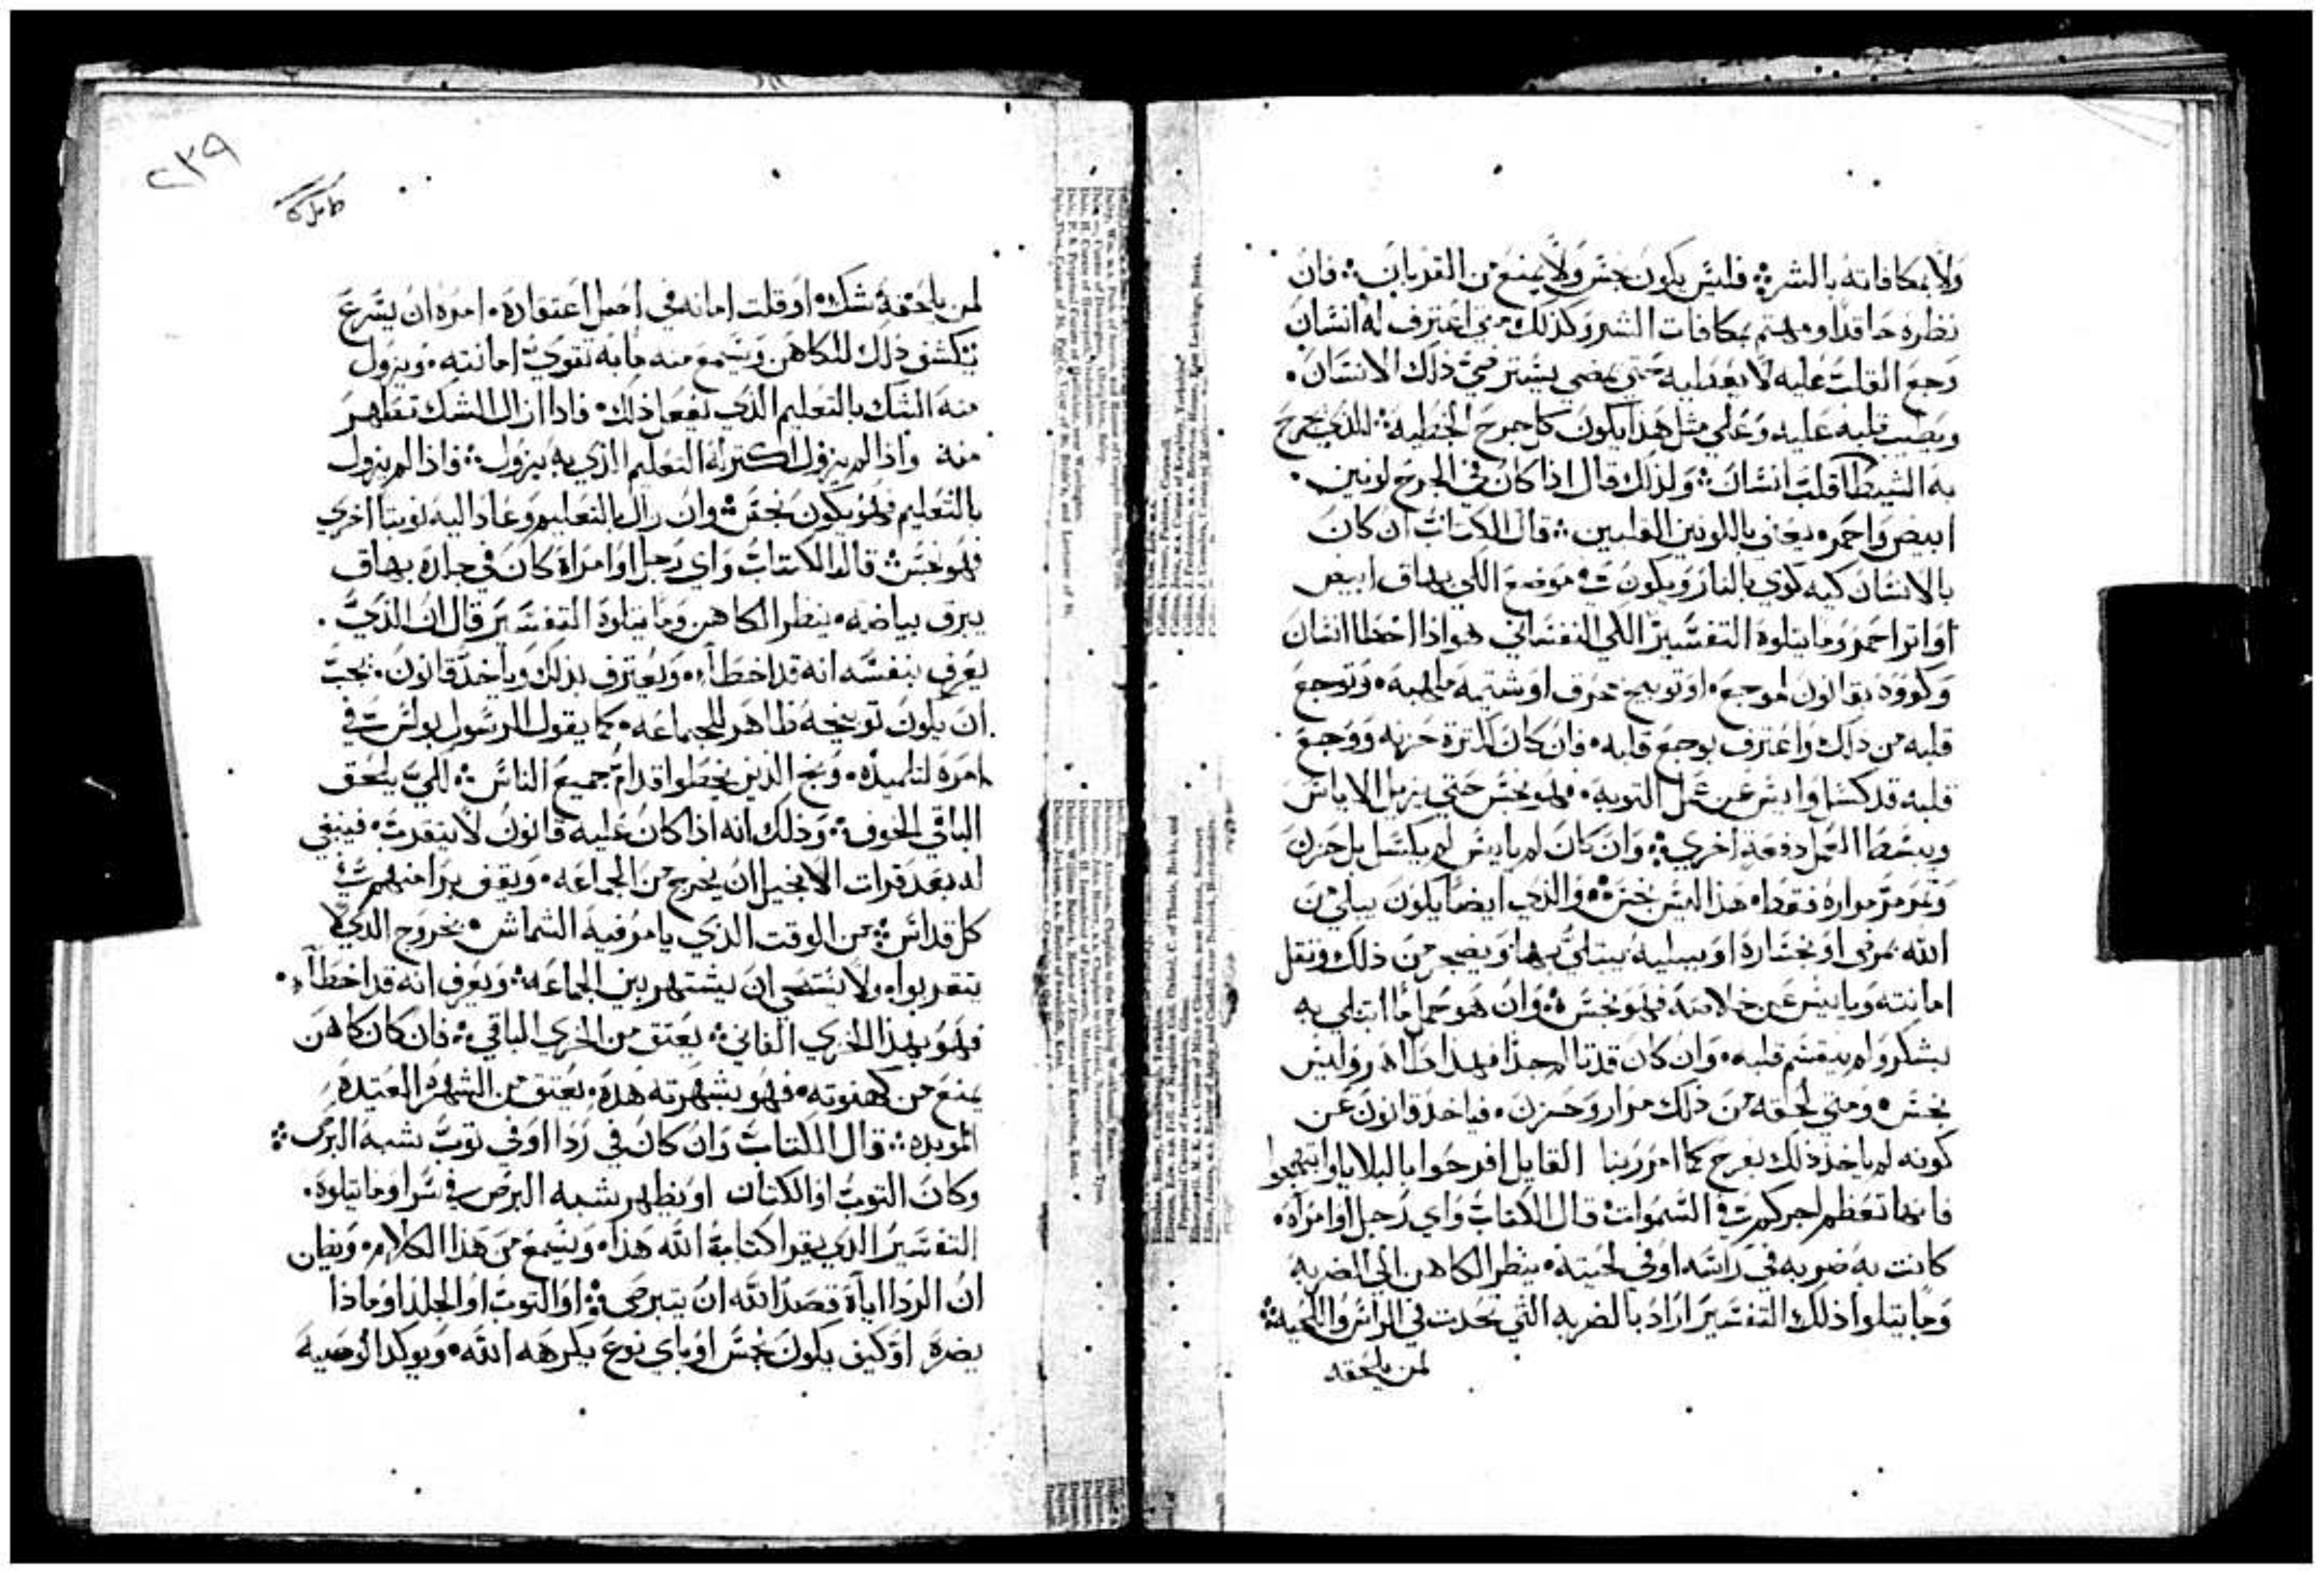 ولا بمكافاته بالشر فليس يكون نجس ولا يمنع من القربان فان
نظره حاقدا ويهتم بمكافات الشر وكذلك متي اعترف له انسان
رجع القلب عليه لا يعد اليه حتي يمضي يسترضي ذلك الانسان
ويطيب قلبه عليه وعلي مثل هذا يكون كل جرح الخطيه الذي يجرح
به الشيطان قلب انسان ولذلك قال اذا كان في الجرح لونين
ابيض واحمر يعني باللونين القلبين قال الكتاب ان كان
بالانسان كيه كوي بالنار ويكون في موضع الكي بهاق ابيض
او اثر احمر وما يتلوه التفسير الكي النفساني هو اذا اخطا انسان
وكووه بقانون موجع او توبيخ حرف او شتيمه ملهبه وتوجع
قلبه من ذلك واعترف بوجع قلبه فان كان لكثرة حزنه ووجع
قلبه قد كسل وايس عن عمل التوبه فهو نجس حتي يزيل الاياس
ويبسط العمل دفعة اخري وان كان لم ياييس لم يكسل بل حزن
وتمرمر مراره فقط هذا ليس نجس والذي ايضا يكون يبلي من
الله بمرض او بخساره او ببليه يبتلي بها ويضجر من ذلك وتقل
امانته وياييس عن خلاصه فهو نجس وان هو حمل ما ابتلي به
بشكر ولم يقسم قلبه وان كان قد تالم جدا فهذا طاهر وليس
نجس ومتي لحقه من ذلك مرار وحزن فياخذ قانون عن
كونه لم ياخذ ذلك بفرح كما امر ربنا القايل افرحوا بالبلايا وابتهجوا
فانها تعظم اجركم في السموات قال الكتاب واي رجل او امراه
كانت به ضربه في راسه او في لحيته ينظر الكاهن الي الضربه
وما يتلوا ذلك التفسير اراد بالضربه التي تحدث في الراس واللحيه
لمن يلحقه
٢٣٩
لمن يلحقه شك او قلت امانه في اصل اعتقاده امره ان يسرع
يكشف ذلك للكاهن ويسمع منه ما به تقوي امانته ويزول
منه الشك بالتعليم الذي يفعل ذلك فاذا ازال الشك تطهر
منه واذا لم يزول اكثر له التعليم الذي به يزول فاذا لم يزول
بالتعليم فهو يكون نجس وان زال بالتعليم وعاد اليه نوبتا اخري
فهو نجس قال الكتاب واي رجل او امراة كان في جلده بهاق
يبرق بياضه ينظر الكاهن وما يتلوه التفسير قال ان الذي
يعرف بنفسه انه قد اخطا ويعترف بذلك وياخذ قانون يجب
ان يكون توبيخه ظاهر للجماعه كما يقول الرسول بولس في
امره لتلميذه وبخ الذين يخطوا قدام جميع الناس لكي يلحق
الباقي الخوف وذلك انه اذا كان عليه قانون لا يتقرب فينبغي
له بعد قرات الانجيل ان يخرج من الجماعه ويقف برا منهم في
كل قداس من الوقت الذي يامر فيه الشماس بخروج الذي لا
يتقربوا ولا يستحي ان يشتهر بين الجماعه ويعرف انه قد اخطا
فهو بهذا الخزي الفاني يعتق من الخزي الباقي فان كان كاهن
يمنع من كهنوته فهو بشهرته هذه يعتق من الشهره العتيده
الموبده قال الكتاب وان كان في ردا او في ثوب شبه البرص
وكان الثوب او الكتان او يظهر شبه البرص في سرا وما يتلوه
التفسير الذي يقرا كتابة الله هذا ويسمع من هذا الكلام ويظن
ان الردا اياه قصد الله ان يتبرص او الثوب او الجلد او ماذا
يضره او كيف يكون نجس او باي نوع يكرهه الله ويوكد الوصيه